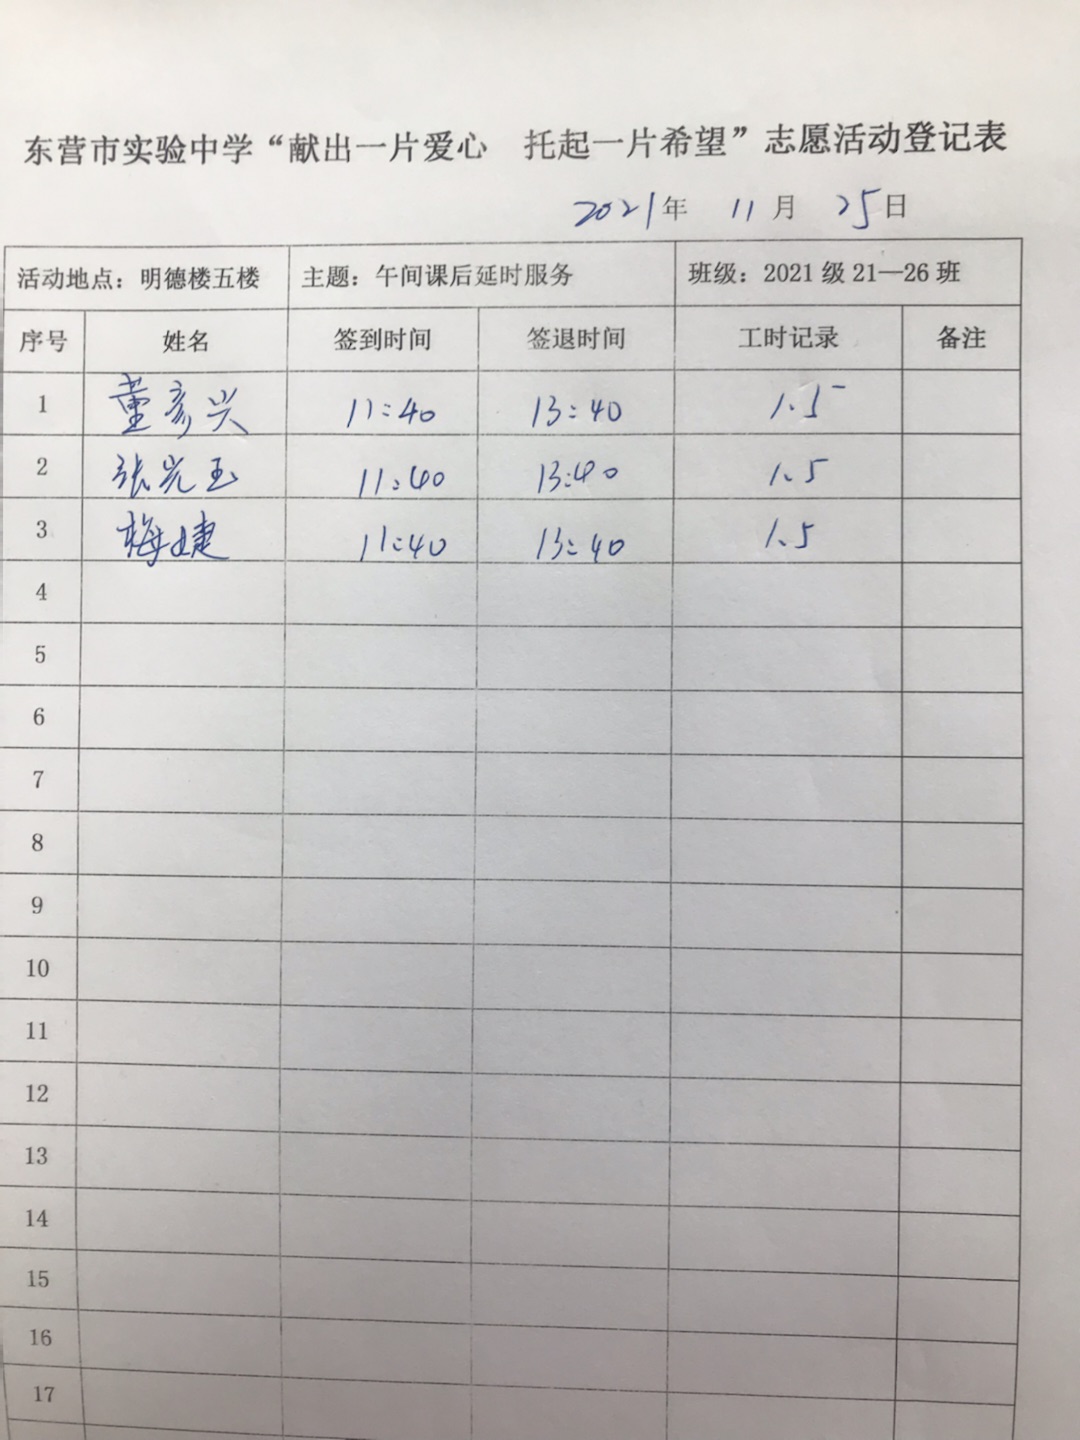 东营市实验中学“献出一片爱心 托起一片希望”志愿活动登记表
2021年 11月 25日
活动地点：明德楼五楼 主题：午间课后延时服务 班级：2021级21—26班
序号 姓名 签到时间 签退时间 工时记录 备注
1 董彦兴 11:40 13:40 1.5
2 张光玉 11:40 13:40 1.5
3 梅婕 11:40 13:40 1.5
4
5
6
7
8
9
10
11
12
13
14
15
16
17